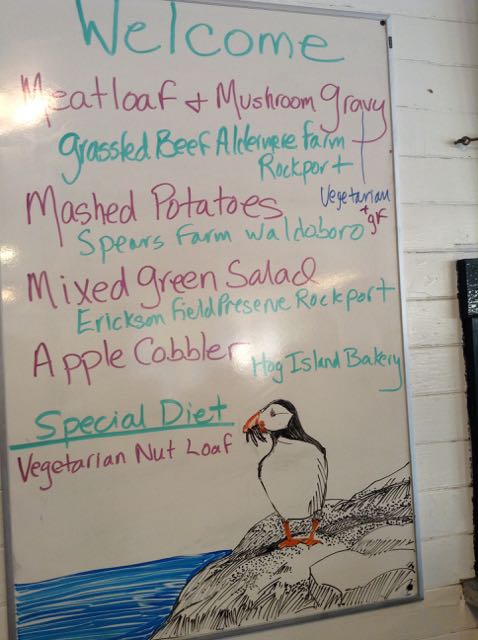 Welcome
Meatloaf + Mushroom gravy
grassfed Beef Aldermere Farm
Rockport
Vegetarian
+ gf
Mashed Potatoes
Spears Farm Waldoboro
Mixed green Salad
Erickson Field Preserve Rockport
Apple Cobbler
Hog Island Bakery
Special Diet
Vegetarian Nut Loaf